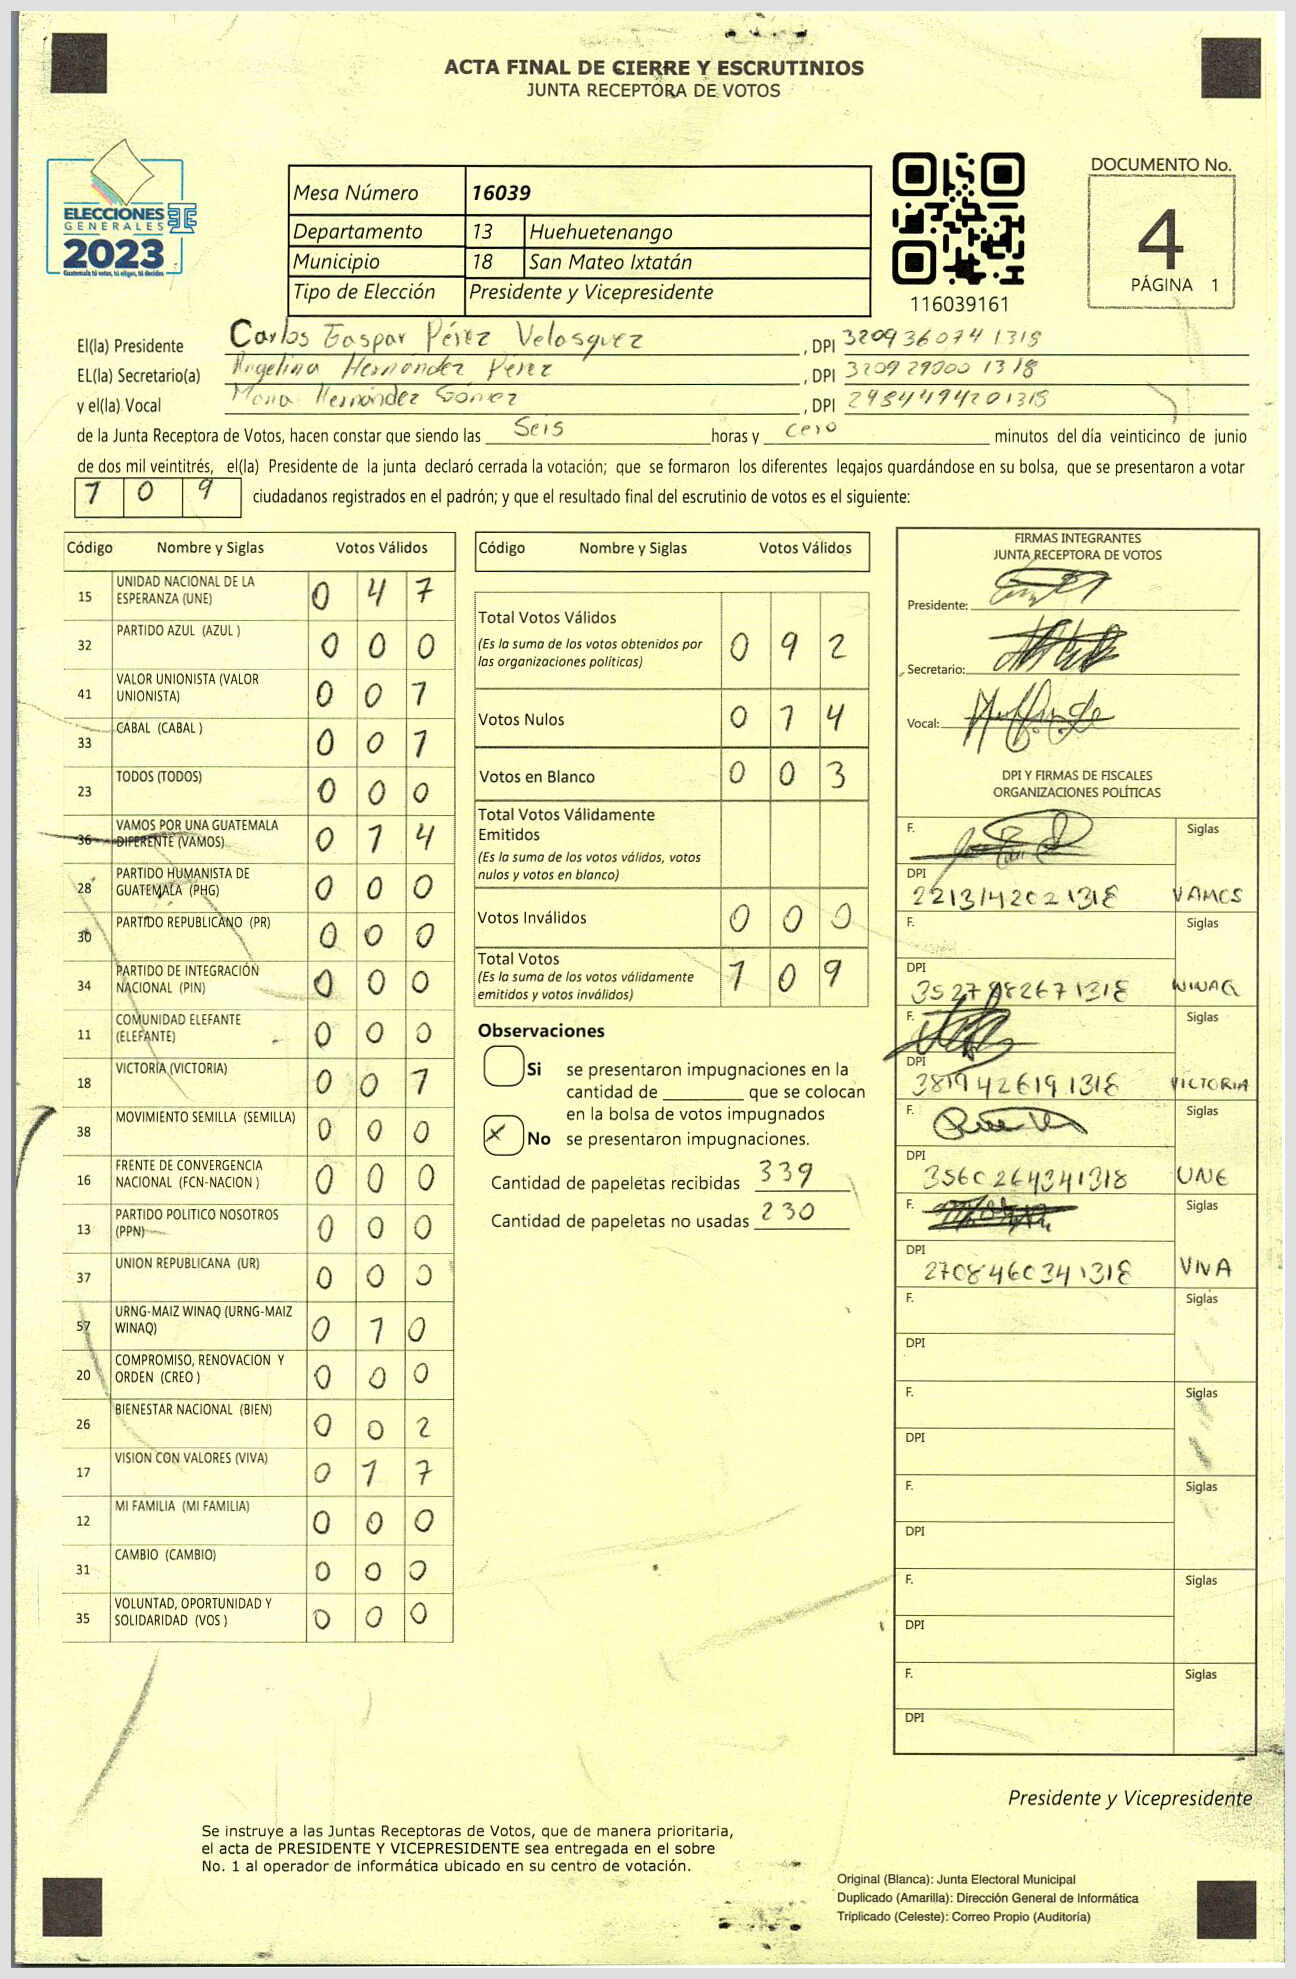 ACTA FINAL DE CIERRE Y ESCRUTINIOS
JUNTA RECEPTORA DE VOTOS
ELECCIONES
GENERALES
2023
Guatemala tú votas, tú eliges, tú decides
Mesa Número 16039
Departamento 13 Huehuetenango
Municipio 18 San Mateo Ixtatán
Tipo de Elección Presidente y Vicepresidente
116039161
DOCUMENTO No.
4
PÁGINA 1
El(la) Presidente Carlos Gaspar Pérez Velasquez , DPI 3209360741318
EL(la) Secretario(a) Angelina Hernández Pérez , DPI 3209290001318
y el(la) Vocal Maria Hernández Gómez , DPI 2984494201318
de la Junta Receptora de Votos, hacen constar que siendo las Seis horas y cero minutos del día veinticinco de junio
de dos mil veintitrés, el(la) Presidente de la junta declaró cerrada la votación; que se formaron los diferentes legajos guardándose en su bolsa, que se presentaron a votar
1 0 9 ciudadanos registrados en el padrón; y que el resultado final del escrutinio de votos es el siguiente:
Código Nombre y Siglas Votos Válidos
15 UNIDAD NACIONAL DE LA ESPERANZA (UNE) 0 4 7
32 PARTIDO AZUL (AZUL ) 0 0 0
41 VALOR UNIONISTA (VALOR UNIONISTA) 0 0 1
33 CABAL (CABAL ) 0 0 1
23 TODOS (TODOS) 0 0 0
36 VAMOS POR UNA GUATEMALA DIFERENTE (VAMOS) 0 1 4
28 PARTIDO HUMANISTA DE GUATEMALA (PHG) 0 0 0
30 PARTIDO REPUBLICANO (PR) 0 0 0
34 PARTIDO DE INTEGRACIÓN NACIONAL (PIN) 0 0 0
11 COMUNIDAD ELEFANTE (ELEFANTE) 0 0 0
18 VICTORIA (VICTORIA) 0 0 1
38 MOVIMIENTO SEMILLA (SEMILLA) 0 0 0
16 FRENTE DE CONVERGENCIA NACIONAL (FCN-NACION ) 0 0 0
13 PARTIDO POLITICO NOSOTROS (PPN) 0 0 0
37 UNION REPUBLICANA (UR) 0 0 0
57 URNG-MAIZ WINAQ (URNG-MAIZ WINAQ) 0 1 0
20 COMPROMISO, RENOVACION Y ORDEN (CREO ) 0 0 0
26 BIENESTAR NACIONAL (BIEN) 0 0 2
17 VISION CON VALORES (VIVA) 0 1 7
12 MI FAMILIA (MI FAMILIA) 0 0 0
31 CAMBIO (CAMBIO) 0 0 0
35 VOLUNTAD, OPORTUNIDAD Y SOLIDARIDAD (VOS ) 0 0 0
Código Nombre y Siglas Votos Válidos
Total Votos Válidos 0 9 2
(Es la suma de los votos obtenidos por
las organizaciones políticas)
Votos Nulos 0 1 4
Votos en Blanco 0 0 3
Total Votos Válidamente
Emitidos
(Es la suma de los votos válidos, votos
nulos y votos en blanco)
Votos Inválidos 0 0 0
Total Votos 1 0 9
(Es la suma de los votos válidamente
emitidos y votos inválidos)
Observaciones
Si se presentaron impugnaciones en la
cantidad de ________ que se colocan
en la bolsa de votos impugnados
X No se presentaron impugnaciones.
Cantidad de papeletas recibidas 339
Cantidad de papeletas no usadas 230
FIRMAS INTEGRANTES
JUNTA RECEPTORA DE VOTOS
Presidente:
Secretario:
Vocal:
DPI Y FIRMAS DE FISCALES
ORGANIZACIONES POLÍTICAS
F. Siglas
DPI 2213142021318 VAMOS
F. Siglas
DPI 3527982671318 WINAQ
F. Siglas
DPI 3819426191318 VICTORIA
F. Siglas
DPI 3560264341318 UNE
F. Siglas
DPI 2708460341318 VIVA
F. Siglas
DPI
F. Siglas
DPI
F. Siglas
DPI
F. Siglas
DPI
F. Siglas
DPI
Presidente y Vicepresidente
Se instruye a las Juntas Receptoras de Votos, que de manera prioritaria,
el acta de PRESIDENTE Y VICEPRESIDENTE sea entregada en el sobre
No. 1 al operador de informática ubicado en su centro de votación.
Original (Blanca): Junta Electoral Municipal
Duplicado (Amarilla): Dirección General de Informática
Triplicado (Celeste): Correo Propio (Auditoría)